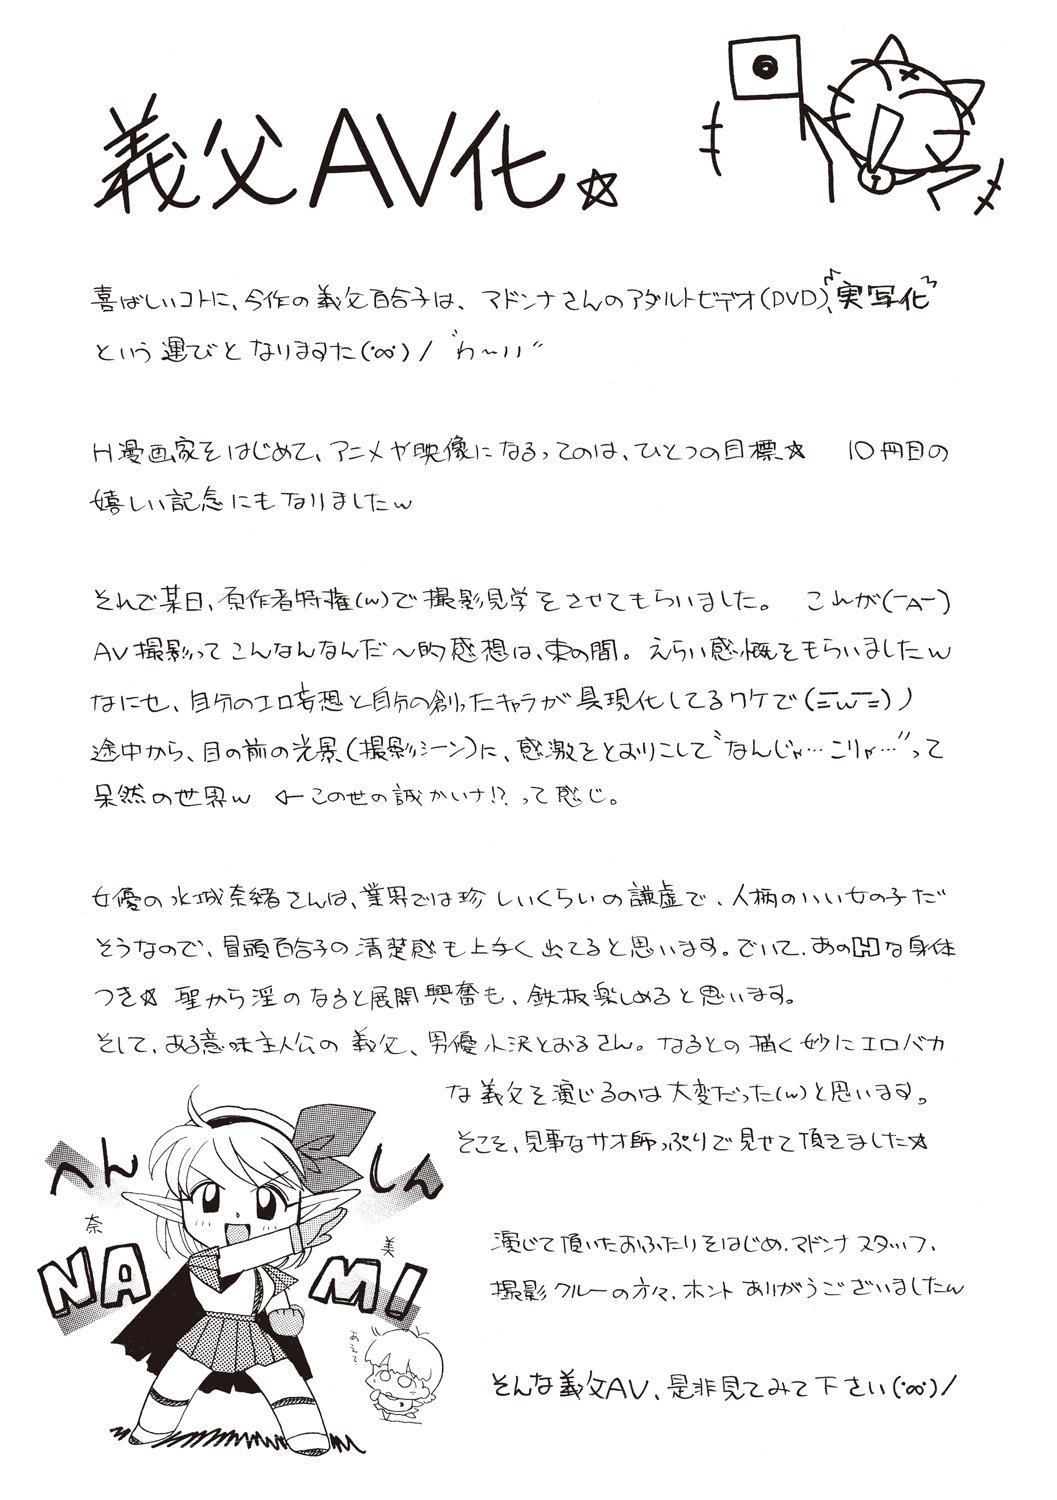 義父AV化☆
喜ばしいコトに、今作の義父百合子は、マドンナさんのアダルトビデオ(DVD)、実写化
という運びとなりますた(･∞･)/ "わ〜いい"
H漫画家をはじめて、アニメや映像になるってのは、ひとつの目標☆ 10冊目の
嬉しい記念にもなりましたw
そんで某日、原作者特権(w)で撮影見学をさせてもらいました。 これが(￣A￣)
AV撮影ってこんなんなんだ〜的感想は、束の間。えらい感慨をもらいましたw
なにせ、自分のエロ妄想と自分の創ったキャラが具現化してるワケで(ΞwΞ))
途中から、目の前の光景(撮影シーン)に、感激をとおりこして"なんじゃ…こりゃ…"って
呆然の世界w ←この世の誠かいな!?って感じ。
女優の水城奈緒さんは、業界では珍しいくらいの謙虚で、人柄のいい女の子だ
そうなので、冒頭百合子の清楚感も上手く出てると思います。でいて、あのHな身体
つき☆ 聖から淫のなると展開興奮も、鉄板楽しめると思います。
そして、ある意味主人公の義父、男優小沢とおるさん。なるとの描く妙にエロバカ
な義父を演じるのは大変だった(w)と思います。
そこを、見事なサオ師っぷりで見せて頂きました☆
へん
しん
奈
NA
美
MI
あえて
演じて頂いたおふたりをはじめ、マドンナスタッフ、
撮影クルーの方々、ホントありがうございましたw
そんな義父AV、是非見てみて下さい(･∞･)/